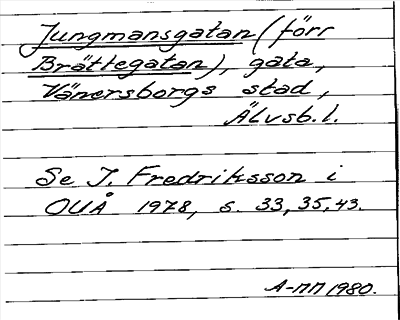 Jungmansgatan (förr
Brättegatan), gata,
Vänersborgs stad,
Älvsb. l.
Se I. Fredriksson i
OUÅ 1978, s. 33, 35, 43.
A-nn 1980.